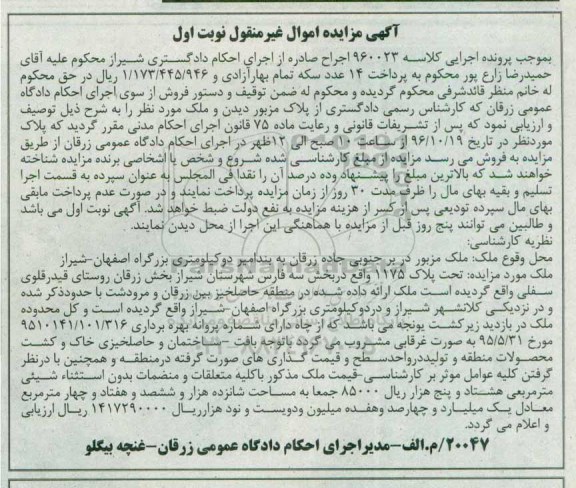 آگهی مزایده اموال غیرمنقول نوبت اول
بموجب پرونده اجرایی کلاسه ۹۶۰۰۲۳ اجراح صادره از اجرای احکام دادگستری شیراز محکوم علیه آقای
حمیدرضا زارع پور محکوم به پرداخت ۱۴ عدد سکه تمام بهارآزادی و ۱/۱۷۳/۴۴۵/۹۴۶ ریال در حق محکوم
له خانم منظر قائدشرفی محکوم گردیده و محکوم له ضمن توقیف و دستور فروش از سوی اجرای احکام دادگاه
عمومی زرقان که کارشناس رسمی دادگستری از پلاک مزبور دیدن و ملک مورد نظر را به شرح ذیل توصیف
و ارزیابی نمود که پس از تشریفات قانونی و رعایت ماده ۷۵ قانون اجرای احکام مدنی مقرر گردید که پلاک
موردنظر در تاریخ ۹۶/۱۰/۱۹ از ساعت ۱۰ صبح الی ۱۲ظهر در اجرای احکام دادگاه عمومی زرقان از طریق
مزایده به فروش می رسد مزایده از مبلغ کارشناسی شده شروع و شخص یا اشخاصی برنده مزایده شناخته
خواهند شد که بالاترین مبلغ را پیشنهاد وده درصد آن را نقدا فی المجلس به عنوان سپرده به قسمت اجرا
تسلیم و بقیه بهای مال را ظرف مدت ۳۰ روز از زمان مزایده پرداخت نمایند و در صورت عدم پرداخت مابقی
بهای مال سپرده تودیعی پس از کسر از هزینه مزایده به نفع دولت ضبط خواهد شد. آگهی نوبت اول می باشد
و طالبین می توانند پنج روز قبل از مزایده با هماهنگی این اجرا از محل دیدن نمایند.
نظریه کارشناسی:
محل وقوع ملک: ملک مزبور در بر جنوبی جاده زرقان به بندامیر دوکیلومتری بزرگراه اصفهان-شیراز
ملک مورد مزایده: تحت پلاک ۱۱۷۵ واقع دربخش سه فارس شهرستان شیراز بخش زرقان روستای قیدرقلوی
سفلی واقع گردیده است ملک ارائه داده شده در منطقه حاصلخیز بین زرقان و مرودشت با حدودذکر شده
و در نزدیکی کلانشهر شیراز و دردوکیلومتری بزرگراه اصفهان-شیراز واقع گردیده است و کل محدوده
ملک در بازدید زیرکشت یونجه می باشد که از چاه دارای شماره پروانه بهره برداری ۹۵۱۰۱۴۱/۱۰۱/۳۱۶
مورخ ۹۵/۵/۳۱ به صورت غرقابی مشروب می گردد باتوجه بافت و ساختمان و حاصلخیزی خاک و کشت
محصولات منطقه و تولیددرواحدسطح و قیمت گذاری های صورت گرفته درمنطقه و همچنین با درنظر
گرفتن کلیه عوامل موثر بر کارشناسی-قیمت ملک مذکور باکلیه متعلقات و منضمات بدون استثناء شیئی
مترمربعی هشتاد و پنج هزار ریال ۸۵۰۰۰ جمعا به مساحت شانزده هزار و ششصد و هفتاد و چهار مترمربع
معادل یک میلیارد و چهارصد وهفده میلیون ودویست و نود هزارریال ۱۴۱۷۲۹۰۰۰۰ ریال ارزیابی
و اعلام می گردد.
۲۰۰۴۷/م.الف-مدیراجرای احکام دادگاه عمومی زرقان-غنچه بیگلو